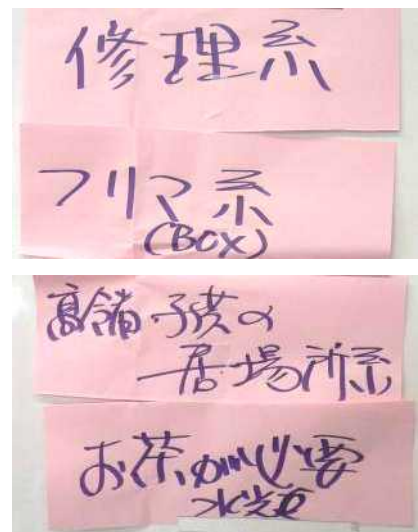 修理系
フリマ系
(BOX)
高齢・子供の
居場所系
お茶が必要
水道